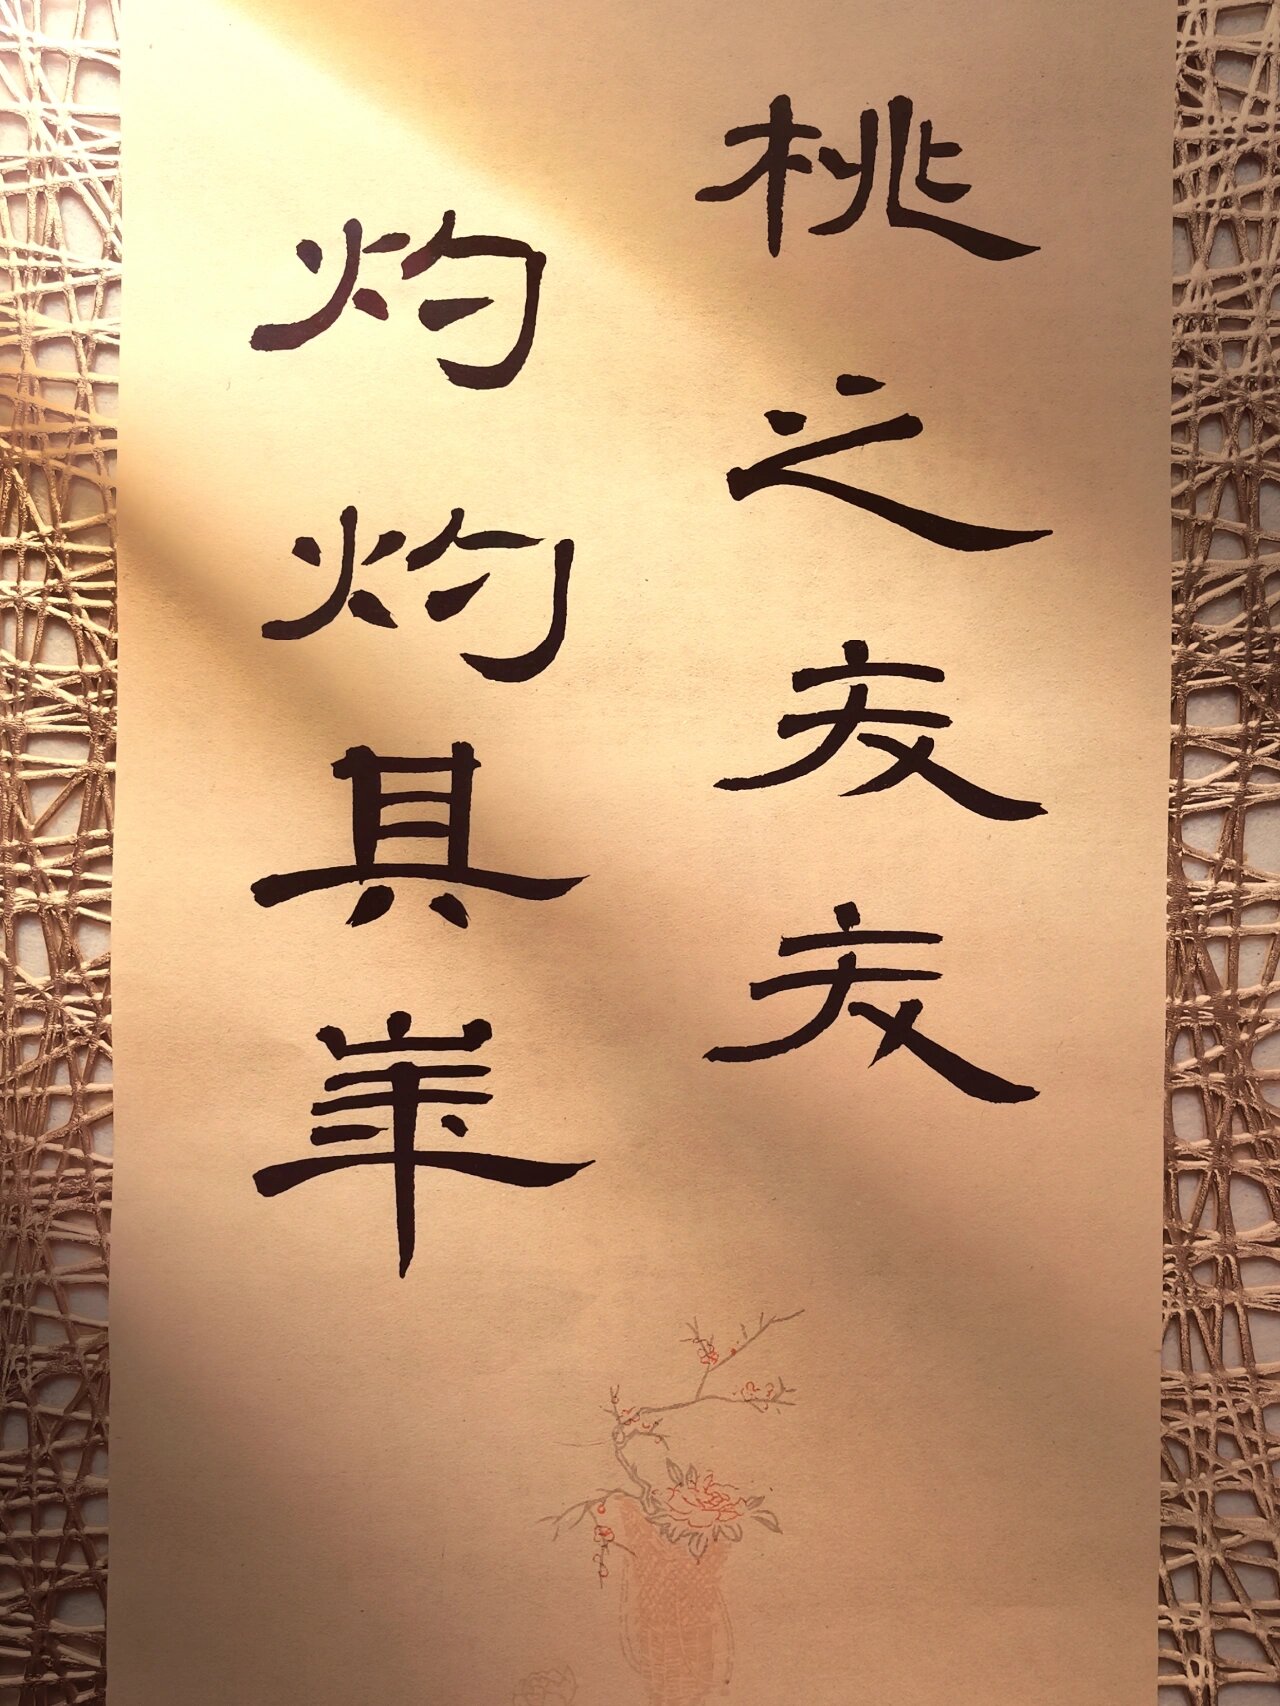 桃之夭夭
灼灼其華